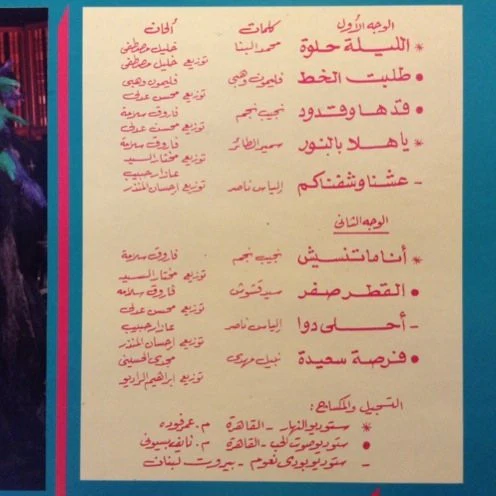 الوجه الأول كلمات ألحان
* الليلة حلوة محمد البنا خليل مصطفى
توزيع خليل مصطفى
• طلبت الخط فليمون وهبي فليمون وهبي
توزيع محسن عدلي
• قدها وقدود نجيب نجم فاروق سلامة
توزيع محسن عدلي
* ياهلا بالنور سمير الطائر فاروق سلامة
توزيع مختار السيد
- عشنا وشفناكم إلياس ناصر عازار حبيب
توزيع إحسان المنذر
الوجه الثاني
* أنا ماتنسيش نجيب نجم فاروق سلامة
توزيع مختار السيد
• القطر صفر سيد قشوش فاروق سلامه
توزيع محسن عدلي
- أحلى دوا إلياس ناصر عازار حبيب
توزيع إحسان المنذر
• فرصة سعيدة نبيل مهدي مجدي الحسيني
توزيع ابراهيم الراديو
التسجيل والمكساج :
* ستوديو النهار - القاهرة م. عمر فوده
• ستوديو صوت الحب - القاهرة م. نايف بسيوني
- ستوديو بودي نعوم - بيروت لبنان